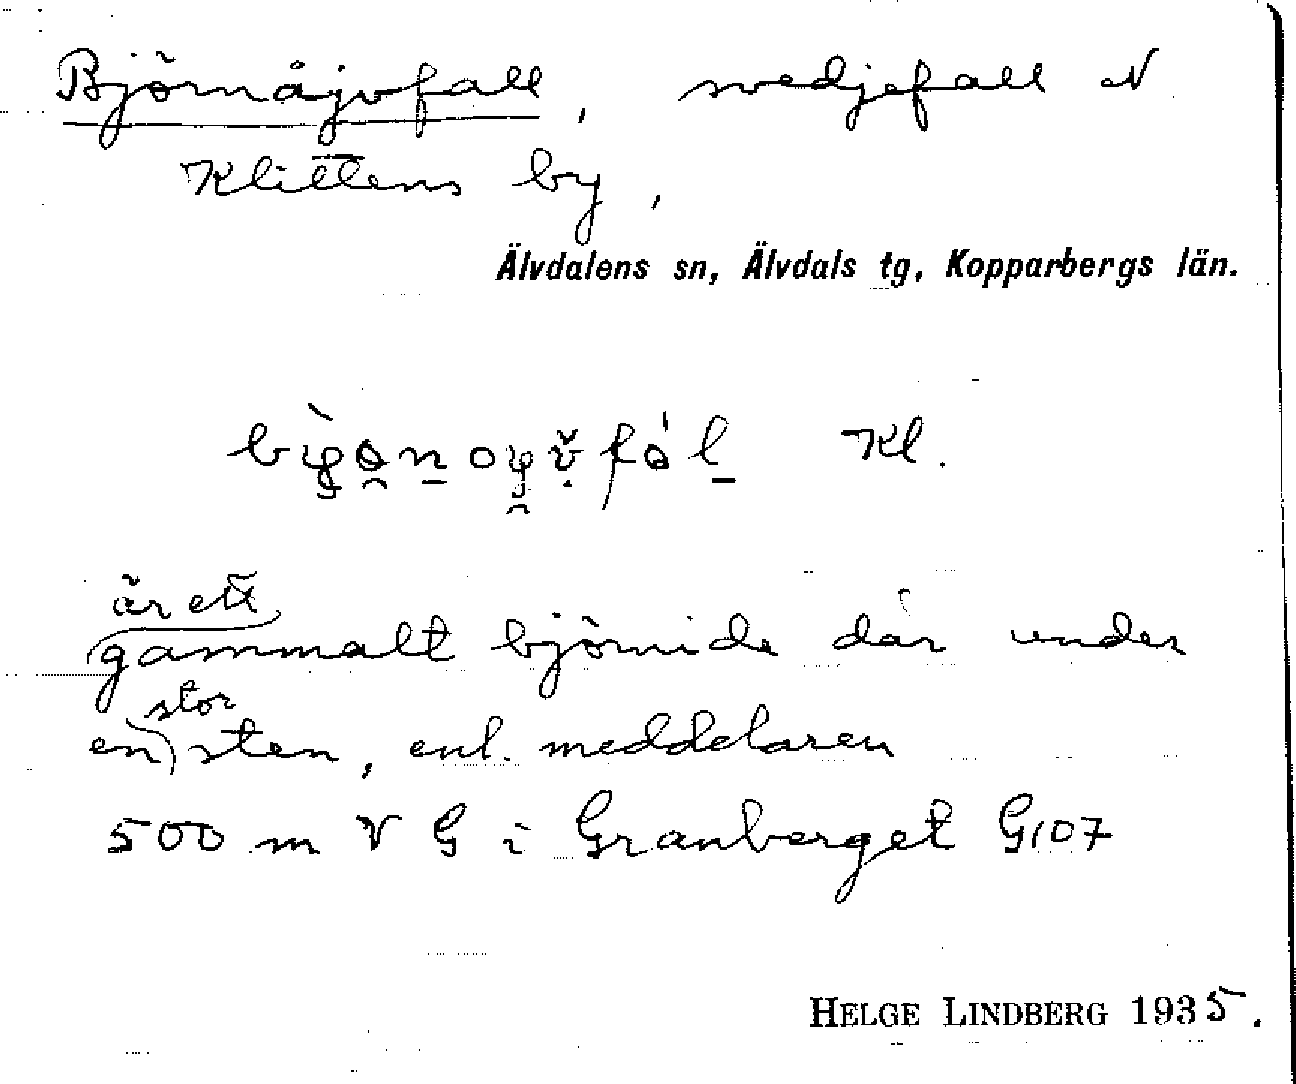 Björnåjvfall, svedjefall N
Klittens by,
Älvdalens sn, Älvdals tg, Kopparbergs län.
Kl.
är ett
gammalt björnide där under
stor
en sten, enl. meddelaren
500 m V G i Granberget G107
HELGE LINDBERG 1935.